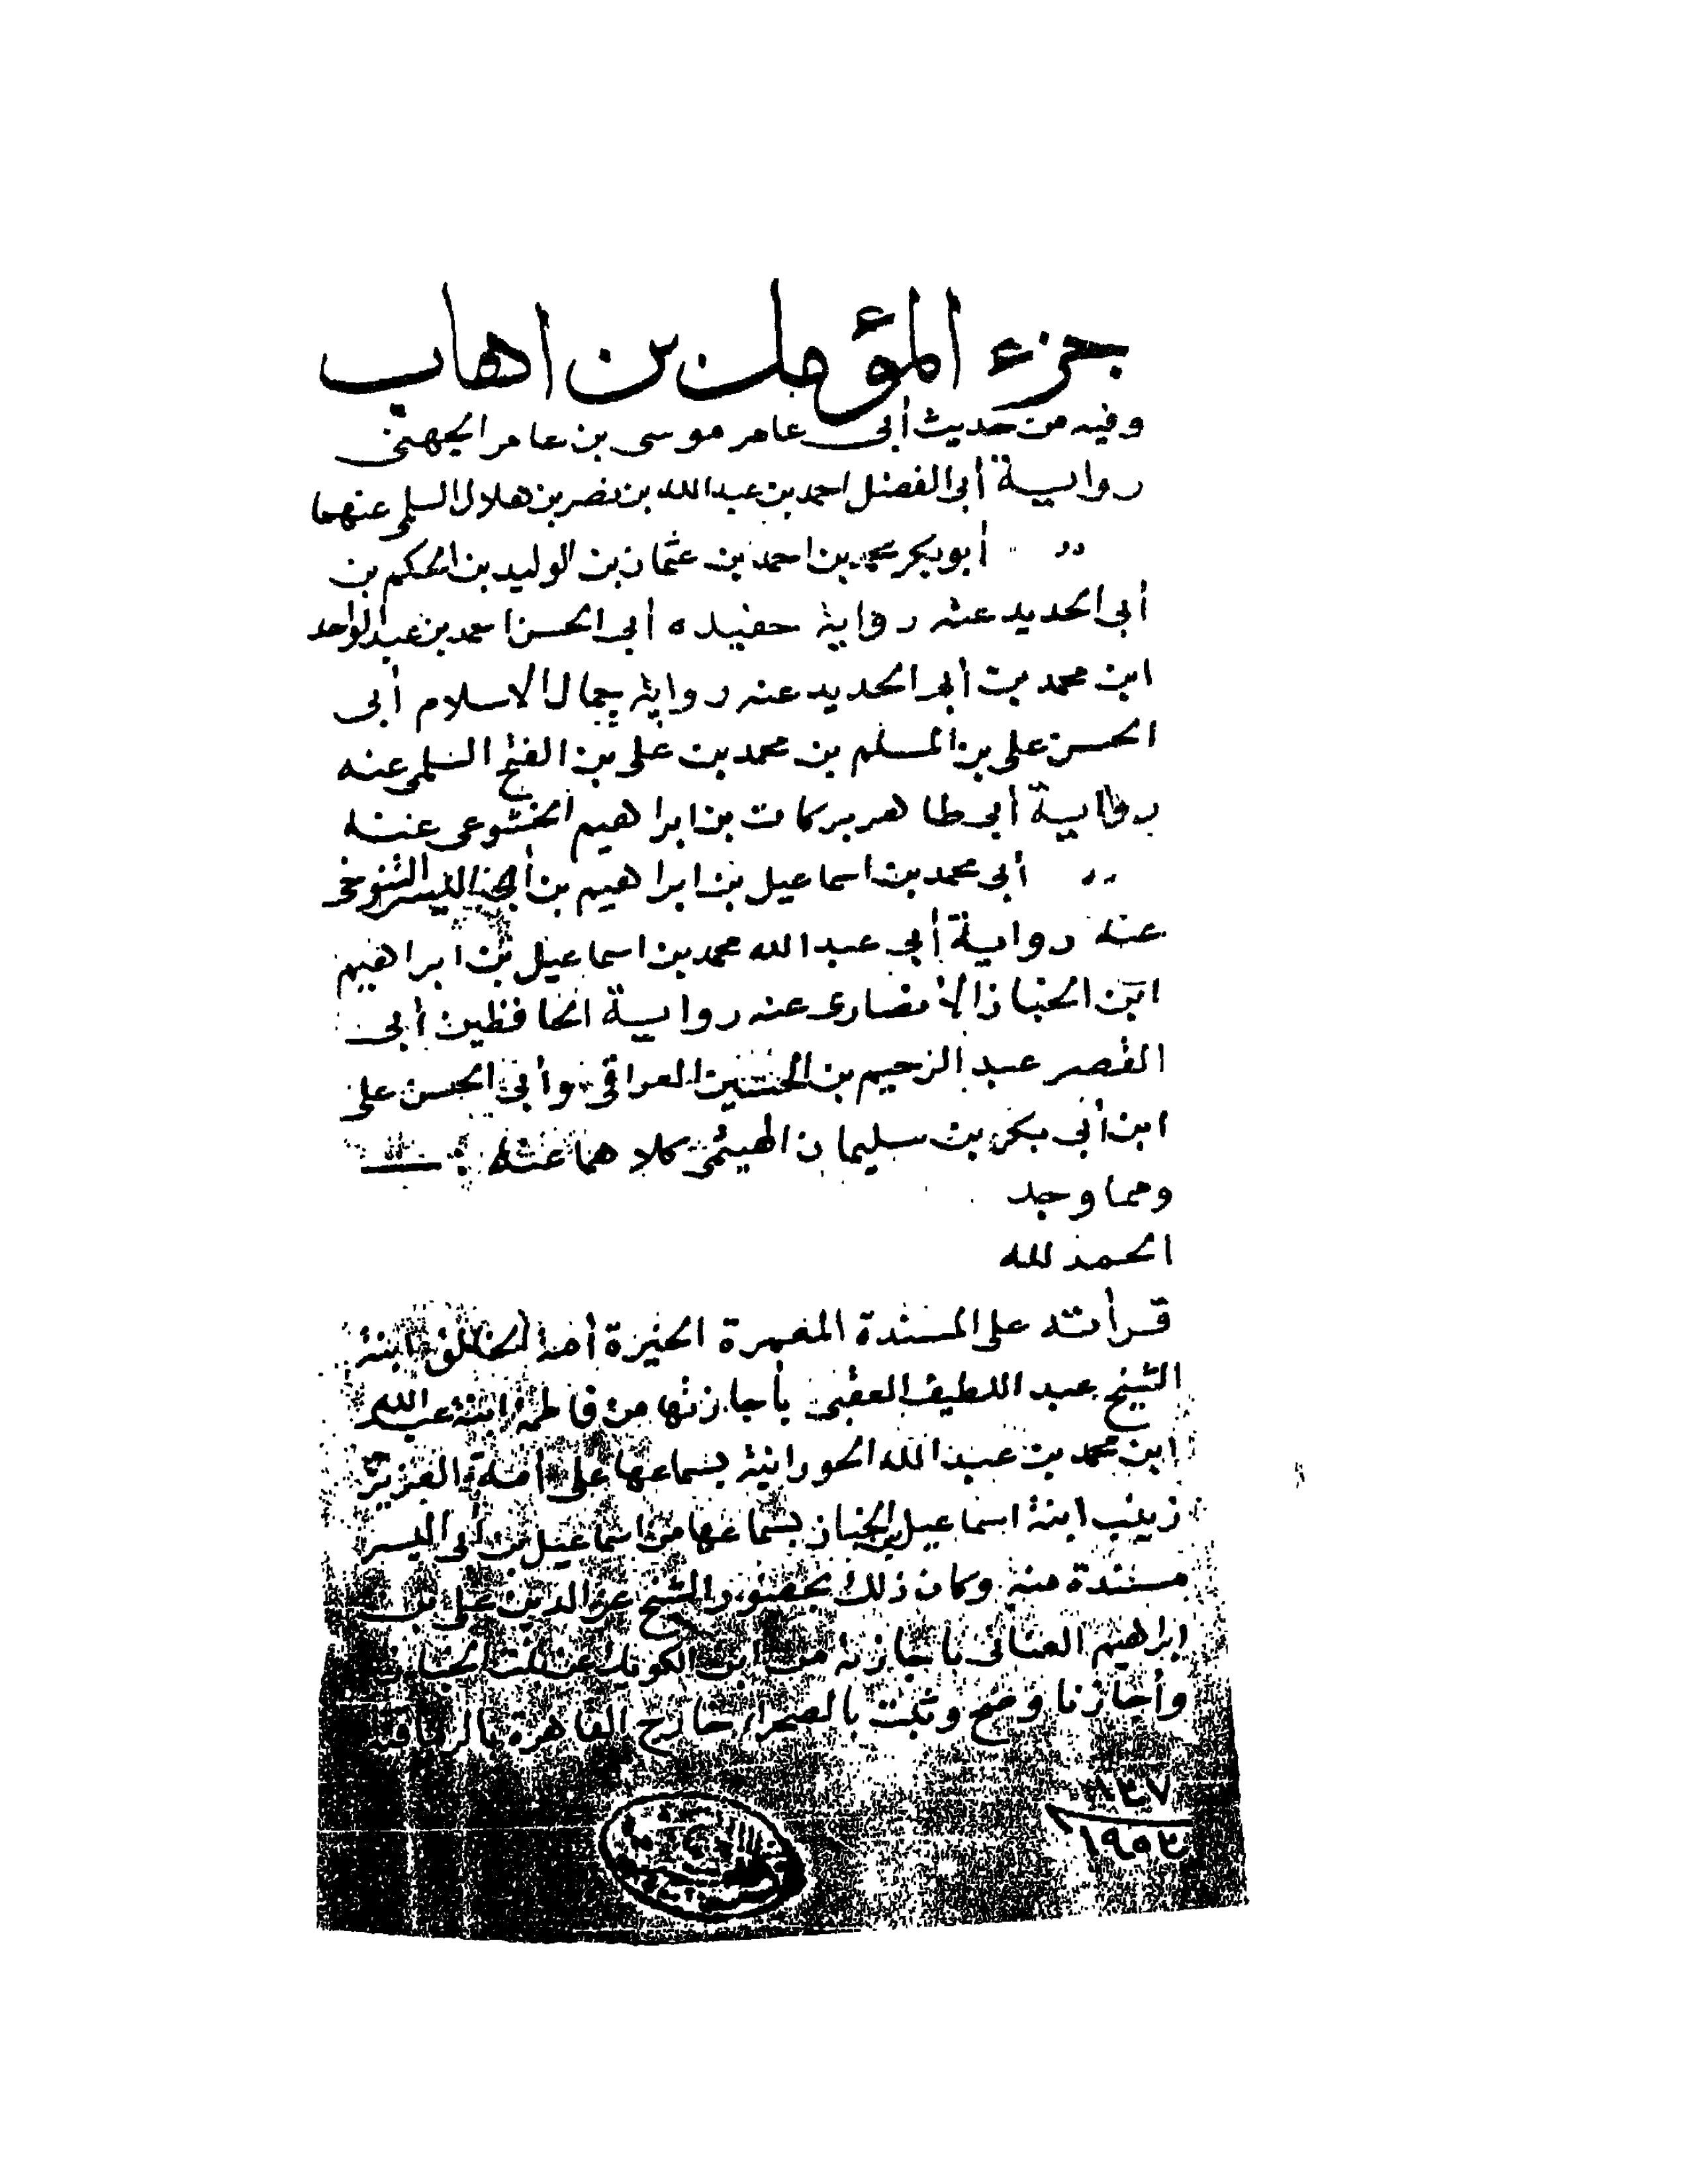 جزء المؤمل بن اهاب
وفيه من حديث أبى عامر موسى بن عامر الجهنى
رواية أبى الفضل احمد بن عبد الله بن نصر بن هلال السلمى عنهما
〃 أبو بكر محمد بن احمد بن عثمان بن الوليد بن الحكم بن
أبى الحديد عنه رواية حفيده أبى الحسن احمد بن عبد الواحد
ابن محمد بن أبى الحديد عنه رواية جمال الاسلام أبى
الحسن على بن المسلم بن محمد بن على بن الفتح السلمى عنه
رواية أبى طاهر بركات بن ابراهيم الخشوعى عنه
〃 أبى محمد بن اسماعيل بن ابراهيم بن أبى اليسر التنوخى
عنه رواية أبى عبد الله محمد بن اسماعيل بن ابراهيم
ابن الخباز الانصارى عنه رواية الحافظين أبى
الفصر عبد الرحيم بن الحسين العراقى وأبى الحسن على
ابن أبى بكر بن سليمان الهيثمى كلاهما عنه
ومما وجد
الحمد لله
قرأته على المسندة المعمرة الخيرة أمة الخالق ابنة
الشيخ عبد اللطيف العقبى بأجازتها من فاطمة ابنة عبد الله
ابن محمد بن عبد الله الحورانية بسماعها على أمة العزيز
زينب ابنة اسماعيل بن الخباز بسماعها من اسماعيل بن أبى اليسر
مسندة منه وكان ذلك بحضور الشيخ عز الدين على بن
ابراهيم العنانى باجازته من ابن الكويك عن بنت الخباز
وأجازنا وصح وثبت بالصحراء خارج القاهرة
١٣٧
١٩٥٢